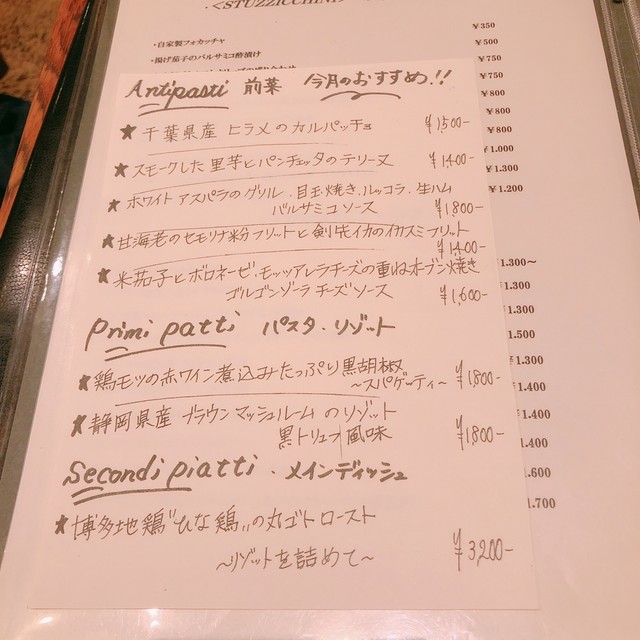 <STUZZICCHINI>
・自家製フォカッチャ ¥350
・揚げ茄子のバルサミコ酢漬け ¥500
¥750
¥750
¥800
¥800
¥800
¥1.000
¥1.300
¥1.200
Antipasti 前菜 今月のおすすめ!!
★千葉県産 ヒラメのカルパッチョ ¥1,500-
★スモークした里芋とパンチェッタのテリーヌ ¥1400-
★ホワイトアスパラのグリル、目玉焼き、ルッコラ、生ハム
バルサミコソース ¥1,800-
★甘海老のセモリナ粉フリットと剣先イカのイカスミフリット
¥1400-
★米茄子とボロネーゼ、モッツアレラチーズの重ねオーブン焼き
ゴルゴンゾーラチーズソース ¥1,600-
Primi patti パスタ・リゾット
★鶏モツの赤ワイン煮込みたっぷり黒胡椒
〜スパゲッティ〜 ¥1,800-
★静岡県産 ブラウンマッシュルームのリゾット
黒トリュフ風味 ¥1,800-
Secondi piatti・メインディッシュ
★博多地鶏"ひな鶏"の丸ゴトロースト
〜リゾットを詰めて〜 ¥3,200-
¥1.300〜
¥1.300
¥1.300
¥1.500
¥1.300
¥1.400
¥1.400
¥1.400
¥1.600
¥1.700